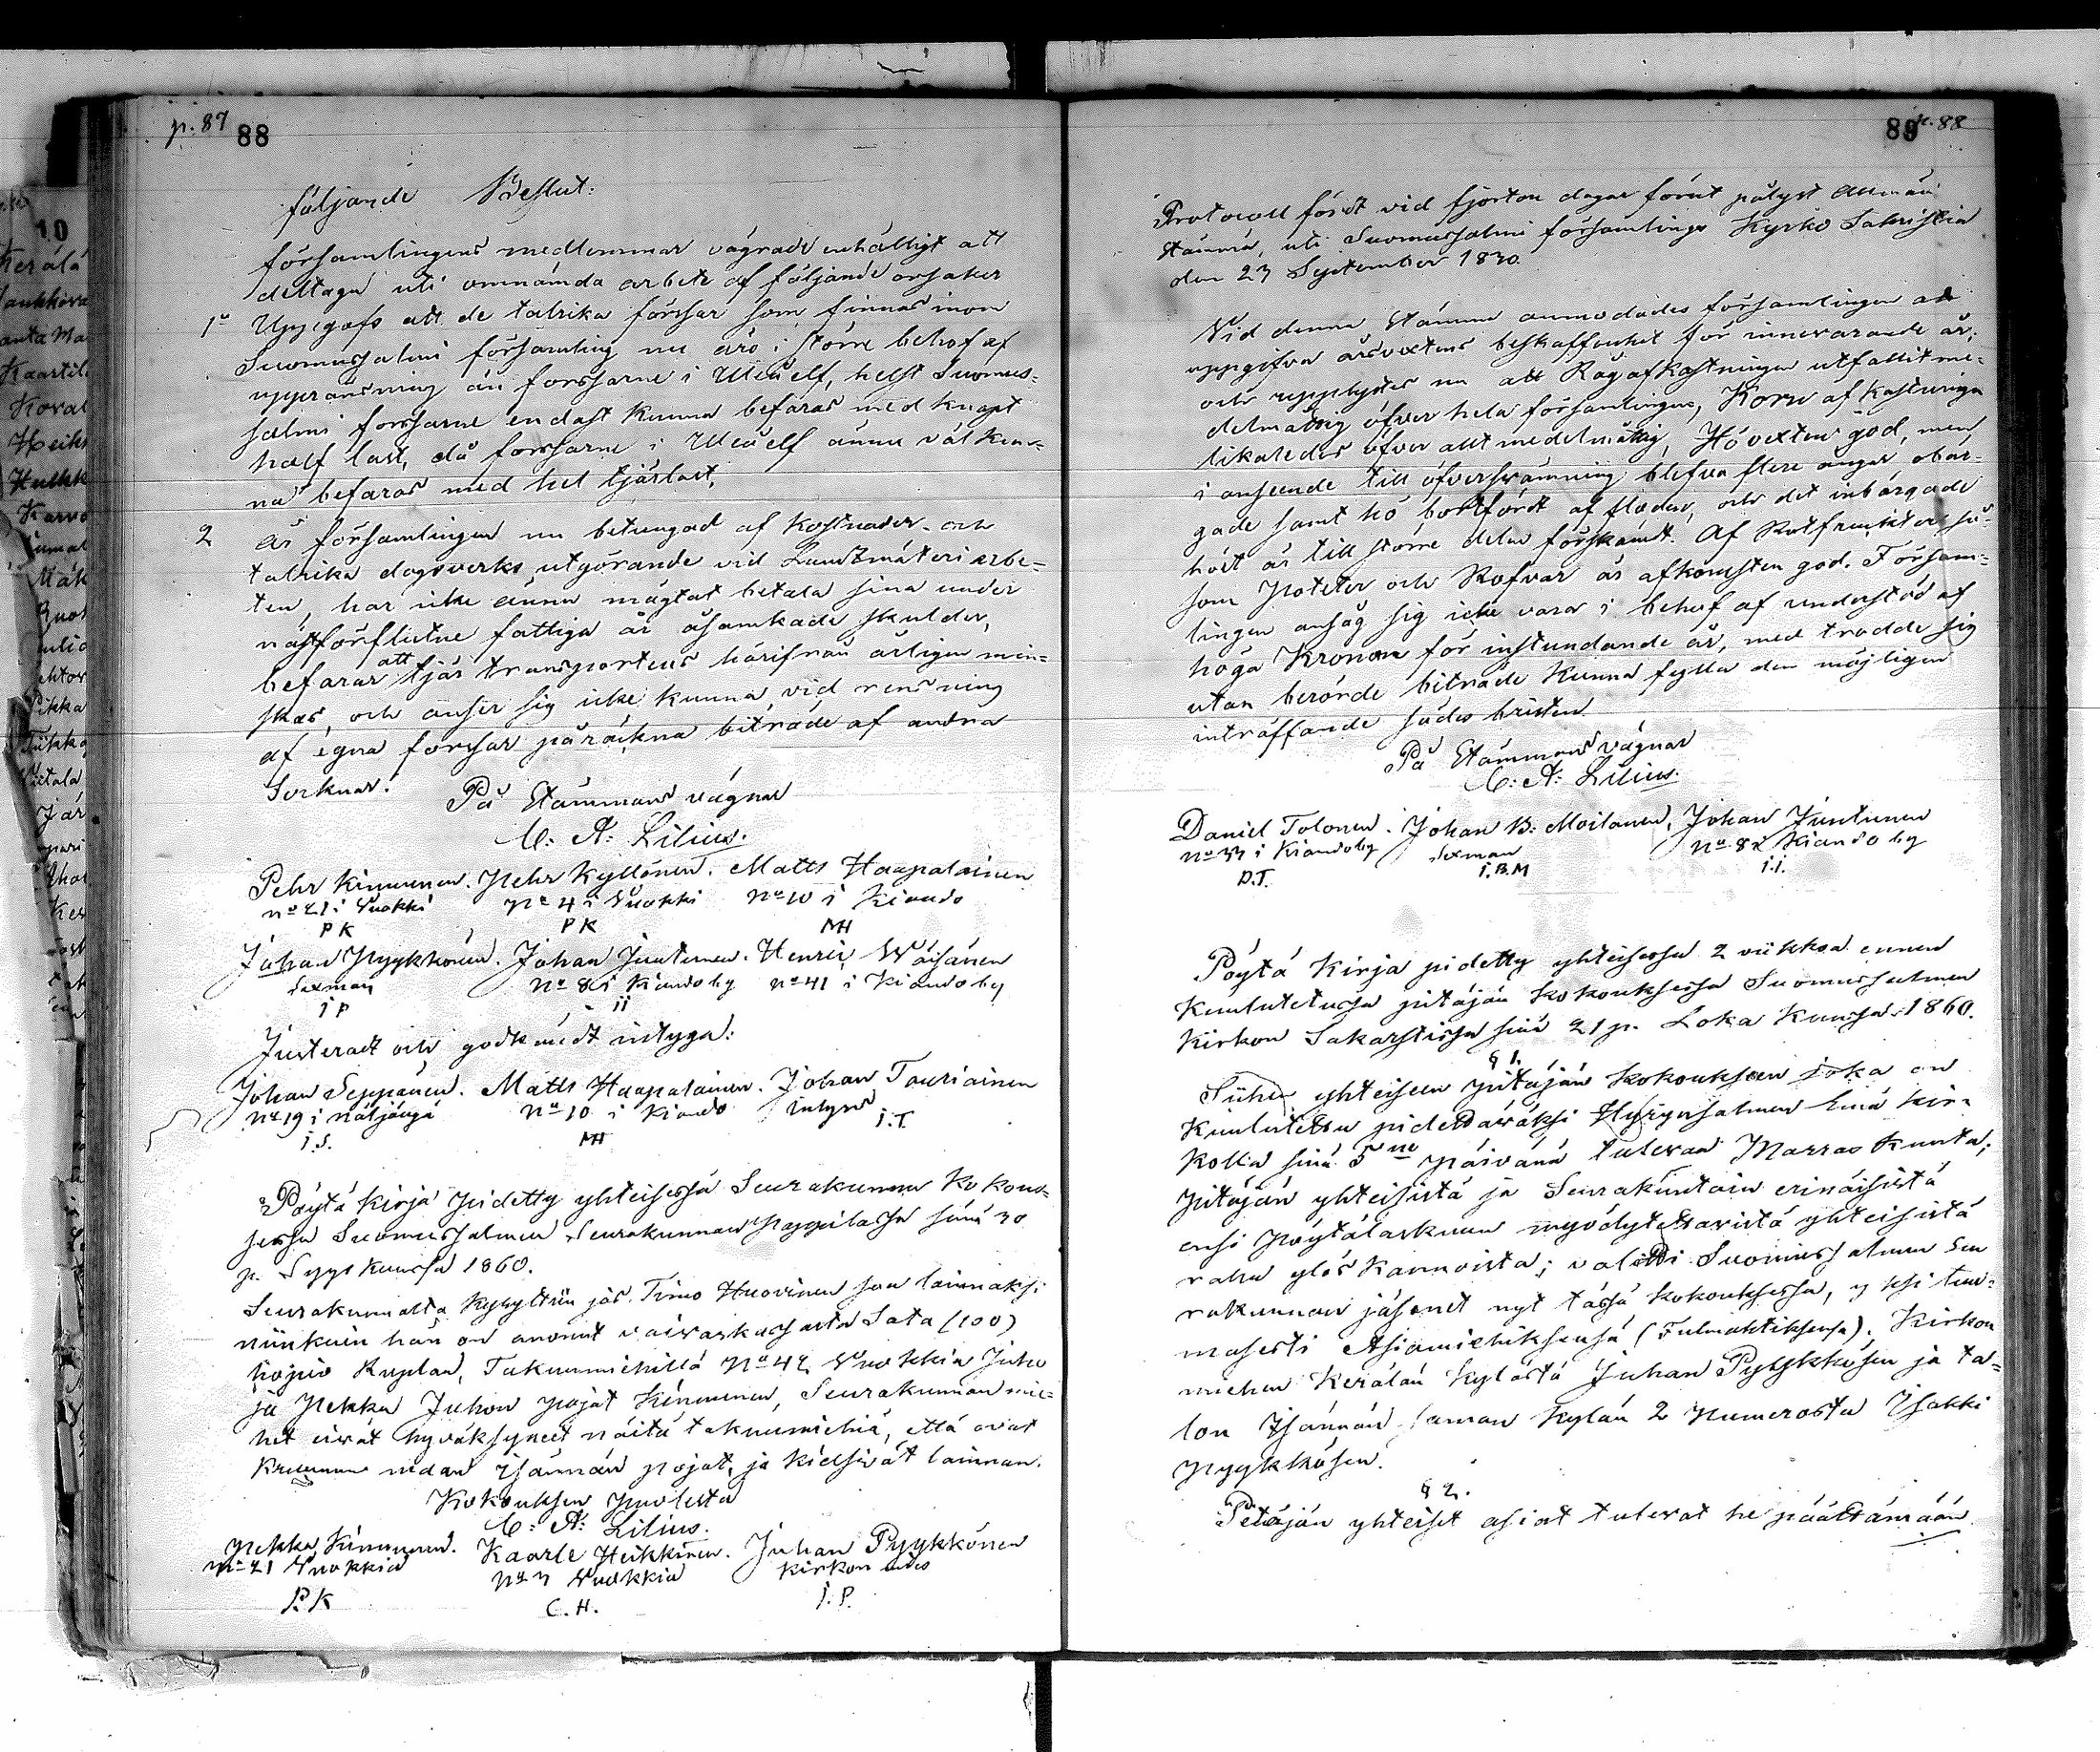 p. 87 88
följande Beslut:
församlingens medlemmar vägrade enhälligt att
deltaga uti omnämda arbete af följande orsaker
1º Uppgafs att de talrika forssar som finnas inom
Suomussalmi församling nu äro i större behof af
upprensning än forssarne i Uleå elf, helst Suomus-
salmi forssarne endast kunna befaras med knapt
half last, då forssarne i Uleå elf ännu väl kun-
na befaras med hel tjärlast,
2 är församlingen nu betungad af kostnader och
talrika dagsverks utgörande vid Landtmäteri arbe-
ten, har icke ännu mägtat betala sina under
nästförflutne fattiga år åsamkade skulder,
befarar att tjär transportens härifrån årligen min-
skas, och anser sig icke kunna vid rensning
af egna forssar påräkna biträde af andra
Socknar.
På Stämmans vägnar
C: A: Lilius.
Pehr Kinnunen. Pehr Kyllönen. Matts Haapalainen
nº 21 i Vuokki nº 4 i Vuokki nº 10 i Kiando
PK PK MH
Johan Pyykkönen. Johan Juntunen. Henric Wäisänen
Sexman nº 8 i Kiando by nº 41 i Kiando by
i P ii
Justeradt och godkändt intyga:
Johan Seppänen. Matts Haapalainen. Johan Tauriainen
nº 19 i Näljängä nº 10 i Kiando Intyar
i.S. MH i.T.
Pöytä kirja pidetty yhteisessä Seurakunnan Ko kouk-
sessa Suomussalmen Seurakunnan Pappilassa sinä 30
p. Syys kuussa 1860.
Seurakunnalta kysyttiin jos Timo Huovinen saa lainaksi
niinkuin hän on anonut vaivaskassasta Sata (100)
hopio Ruplan, Takuumiehillä Nº 42 Vuokkia Juho
ja Pekka Juhon pojat Kinnunen, Seurakunnan mie-
het eivät hyväksyneet näitä takuumiehiä, että ovat
Kruunun maan Isännän pojat, ja kielsivät lainan.
Kokouksen puolesta
C: A: Lilius.
Pekka Kinnunen. Kaarle Heikkinen. Juhan Pyykkönen
nº 21 Vuokkia nº 7 Vuokkia Kirkon mies
P. K C. H. i. P.
89 p. 88
Protocoll fördt vid fjorton dagar förut pålyst Allmän
Stämma, uti Suomussalmi församlings Kyrko Sakristia
den 23 September 1830.
Vid denna Stämma anmodades församlingen att
uppgifva årsvextens beskaffenhet för innevarande år;
och upplystes nu att Rågafkastningen utfallit me-
delmåttig öfver hela församlingen, Korn afkastningen
likaledes öfver allt medelmåttig, Hö vexten god, men
i anseende till öfversvämning blefvo flere ängar obär-
gade samt hö bortfördt af floden, och det inbärgade
höet är till större delen förskämt. Af Rotfrukter, så-
som Poteter och Rofvor är afkomsten god. Försam-
lingen ansåg sig icke vara i behof af understöd af
höga Kronan för instundande år, med trodde sig
utan berörde biträde kunna fylla den möjligen
inträffande sädes bristen.
På Stämmans vägnar
C: A: Lilius.
Daniel Tolonen. Johan B: Moilanen, Johan Juntunen
nº 33 i Kiando by Sexman nº 82 Kiando by
D.T. i.B.M i.i.
Pöytä Kirja pidetty yhteisessa 2 viikkoa ennen
Kuulutetussa pitäjän kokouksessa Suomussalmen
Kirkon Sakarstissa sinä 21 p. Loka Kuussa 1860.
§ 1.
Siihen yhteiseen pitäjän kokouksen joka on
Kuulutettu pidettäväksi Hyrynsalmen Emä kir-
kolla sinä 5 ne päivänä tulevaa Marras kuuta,
pitäjän yhteisistä ja Seurakuntain erinäisistä
ensi pöytälaskuun myödytettävistä yhteisistä
rahan ylös kannoista; valitti Suomussalmen Seu
rakunnan jäsenet nyt tässä kokouksessa, yksi tui-
masesti Asiamiehiksensä (Fulmahtiksensa). Kirkon
miehen Kerälän kylästä Juhan Pyykkösen ja ta-
lon Isännän saman kylän 2 Numerosta Isakki
Pyykkösen.
§ 2.
Pitäjän yhteiset asiat tulevat he päättämään.